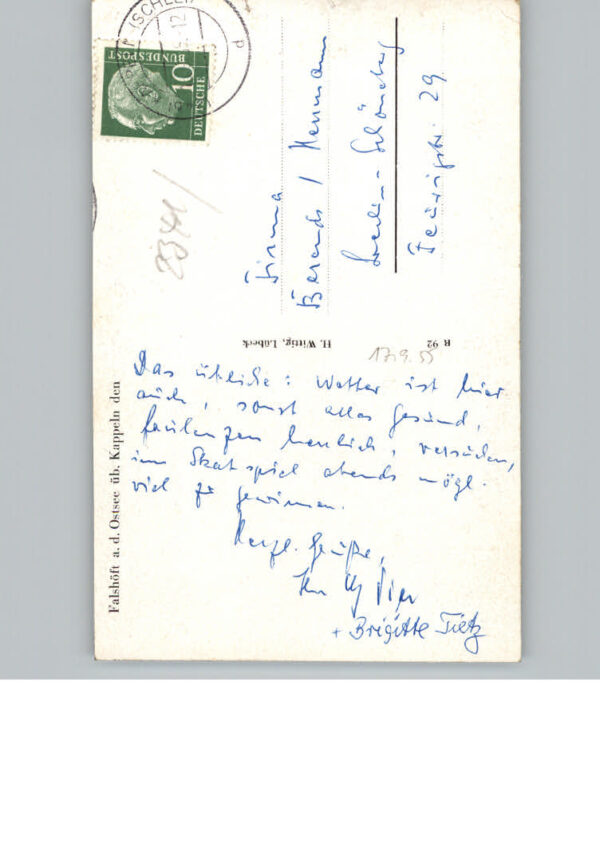 Falshöft a. d. Ostsee üb. Kappeln den
17.9.55
Das übliche: Wetter ist hier
auch, sonst alles gesund,
faulenzen herrlich, versuchen,
im Skatspiel abends mögl.
viel zu gewinnen.
Herzl. Grüße,
Ihr
+ Brigitte Tietz
H. Wittig, Lübeck
R 92
DEUTSCHE
BUNDESPOST
10
(SCHLEI)
12
p
2341/
Firma
Berends / Neumann
Berlin-Schöneberg
Feurigstr. 29